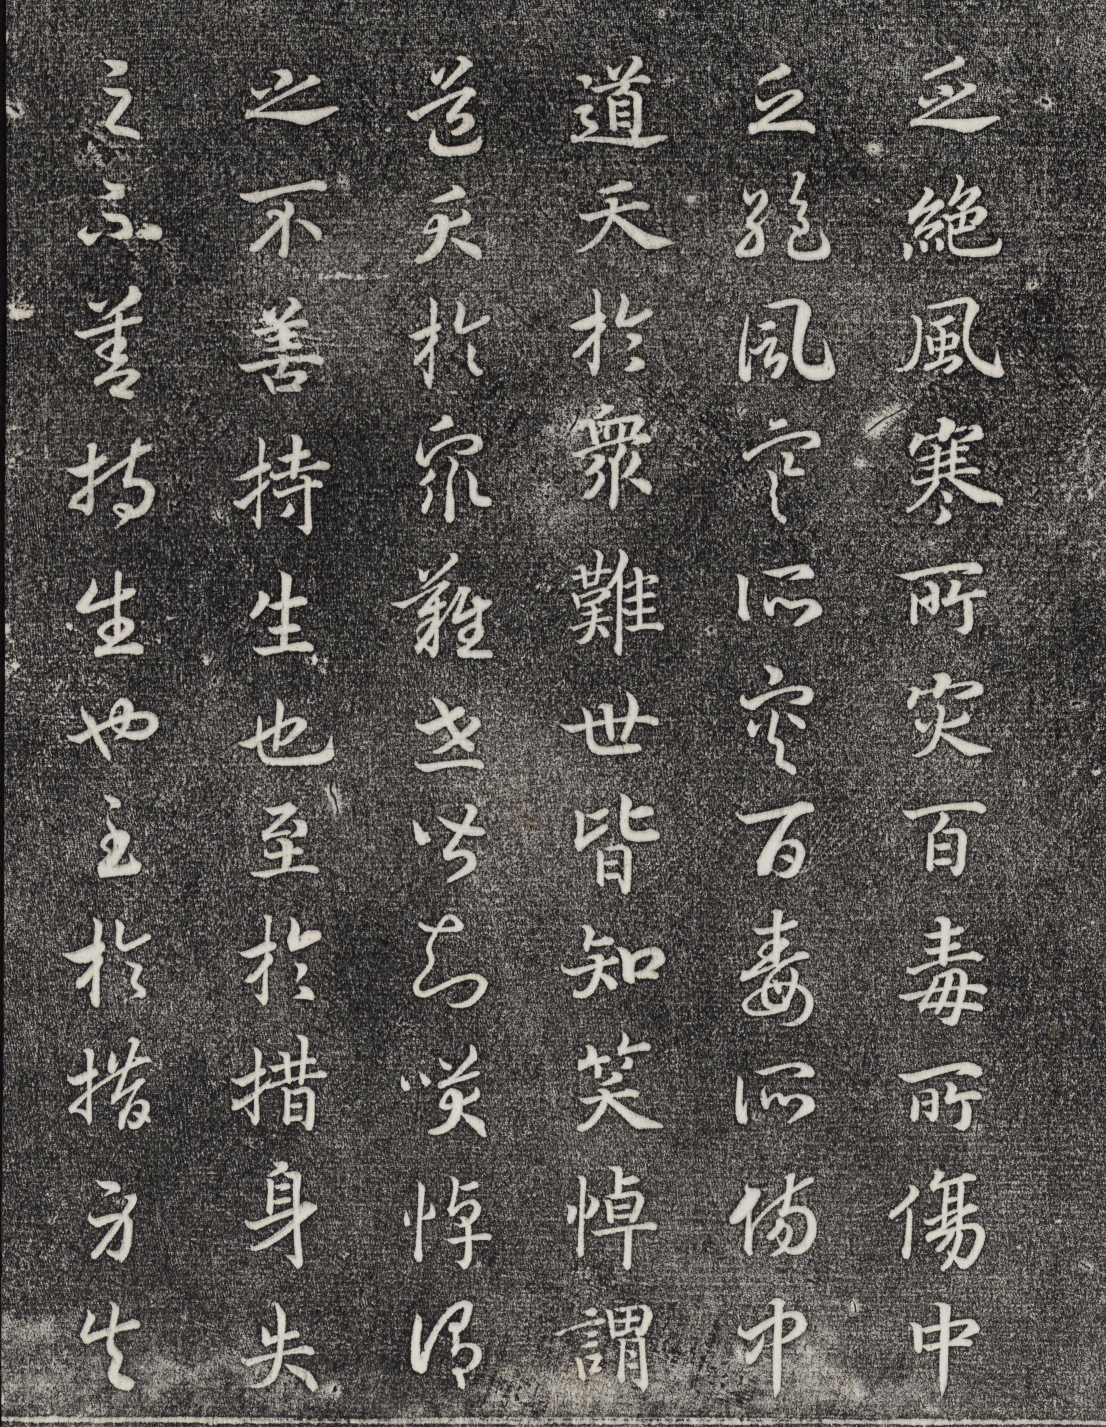 乏絕風寒所灾百毒所傷中
乏絕風寒所灾百毒所傷中
道夭於衆難世皆知笑悼謂
道夭於衆難世皆知笑悼謂
之不善持生也至於措身失
之不善持生也至於措身失